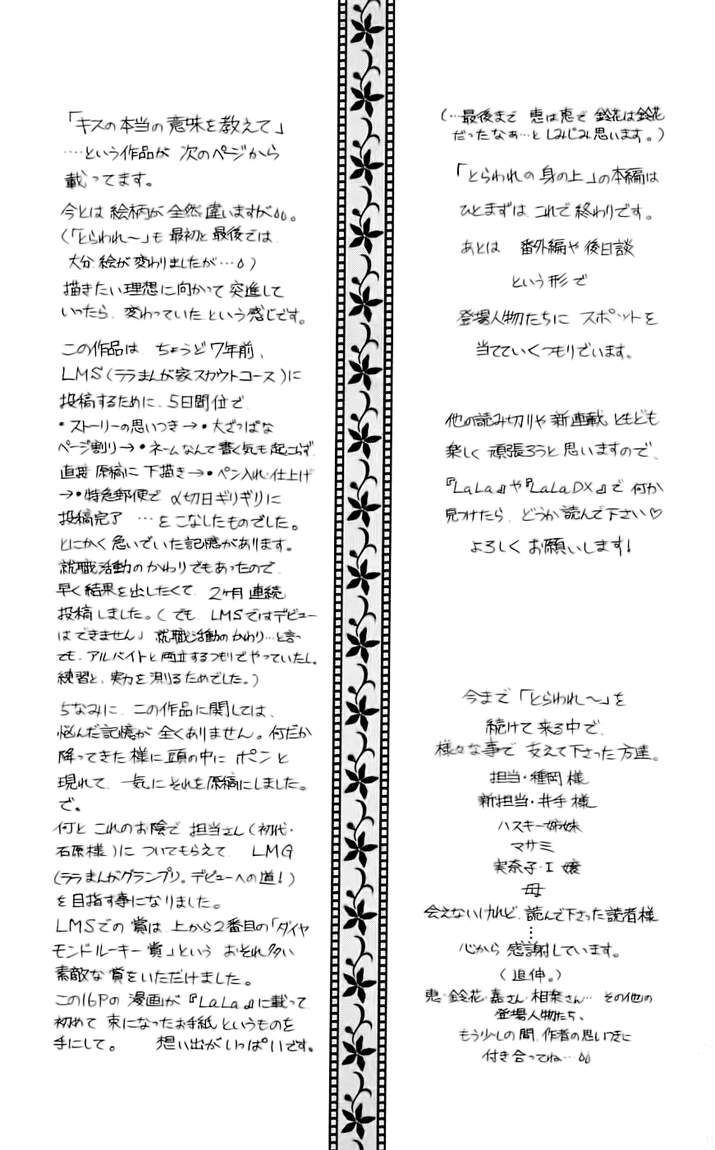 (…最後まで 恵は恵で 鈴花は鈴花
だったなぁ…と しみじみ思います。)
「とらわれの身の上」の本編は
ひとまずは これで終わりです。
あとは 番外編や後日談
という形で
登場人物たちに スポットを
当てていくつもりでいます。
他の読み切りや新連載。ともども
楽しく 頑張ろうと思いますので、
『LaLa』や『LaLaDX』で何か
見つけたら、どうか読んで下さい♡
よろしく お願いします!
今まで「とらわれ〜」を
続けて来る中で、
様々な事で 支えて下さった方達。
担当・種岡様
新担当・井手様
ハスキー姉妹
マサミ
実奈子・I 嬢
母
会えないけれど、読んで下さった読者様
⋮
心から 感謝しています。
(追伸。)
恵・鈴花・嘉さん・相楽さん… その他の
登場人物たち、
もう少しの間、作者の思いつきに
付き合ってね…
「キスの本当の意味を教えて」
‥‥という作品が 次のページから
載ってます。
今とは 絵柄が 全然 違いますが。
(「とらわれ〜」も 最初と最後では
大分 絵が変わりましたが…)
描きたい理想に向かって 突進して
いったら、変わっていた という感じです。
この作品は ちょうど7年前、
LMS(ララまんが家スカウトコース)に
投稿するために、5日間位で、
・ストーリーの思いつき→・大ざっぱな
ページ割り→・ネームなんて書く気も起こらず
直接 原稿に 下描き→・ペン入れ・仕上げ
→・特急郵便で 〆切日ギリギリに
投稿完了 …を こなしたものでした。
とにかく 急いでいた記憶があります。
就職活動のかわりでもあったので、
早く結果を出したくて、2ヶ月 連続
投稿しました。(でも、LMSではデビュー
はできません」就職活動のかわり…と言っ
ても、アルバイトと両立するつもりでやっていたし。
練習と、実力を測るためでした。)
ちなみに、この作品に関しては、
悩んだ記憶が 全くありません。何だか
降ってきた 様に 頭の中に ポンと
現れて、一気に それを原稿にしました。
で。
何と これのお陰で 担当さん(初代・
石原様)に ついてもらえて LMG
(ララまんがグランプリ。デビューへの道!)
を目指す事になりました。
LMSでの 賞は 上から2番目の「ダイヤ
モンドルーキー賞」という おそれ多い
素敵な賞をいただけました。
この16Pの 漫画が『LaLa』に載って
初めて 束になったお手紙 というものを
手にして。 想い出がいっぱいです。